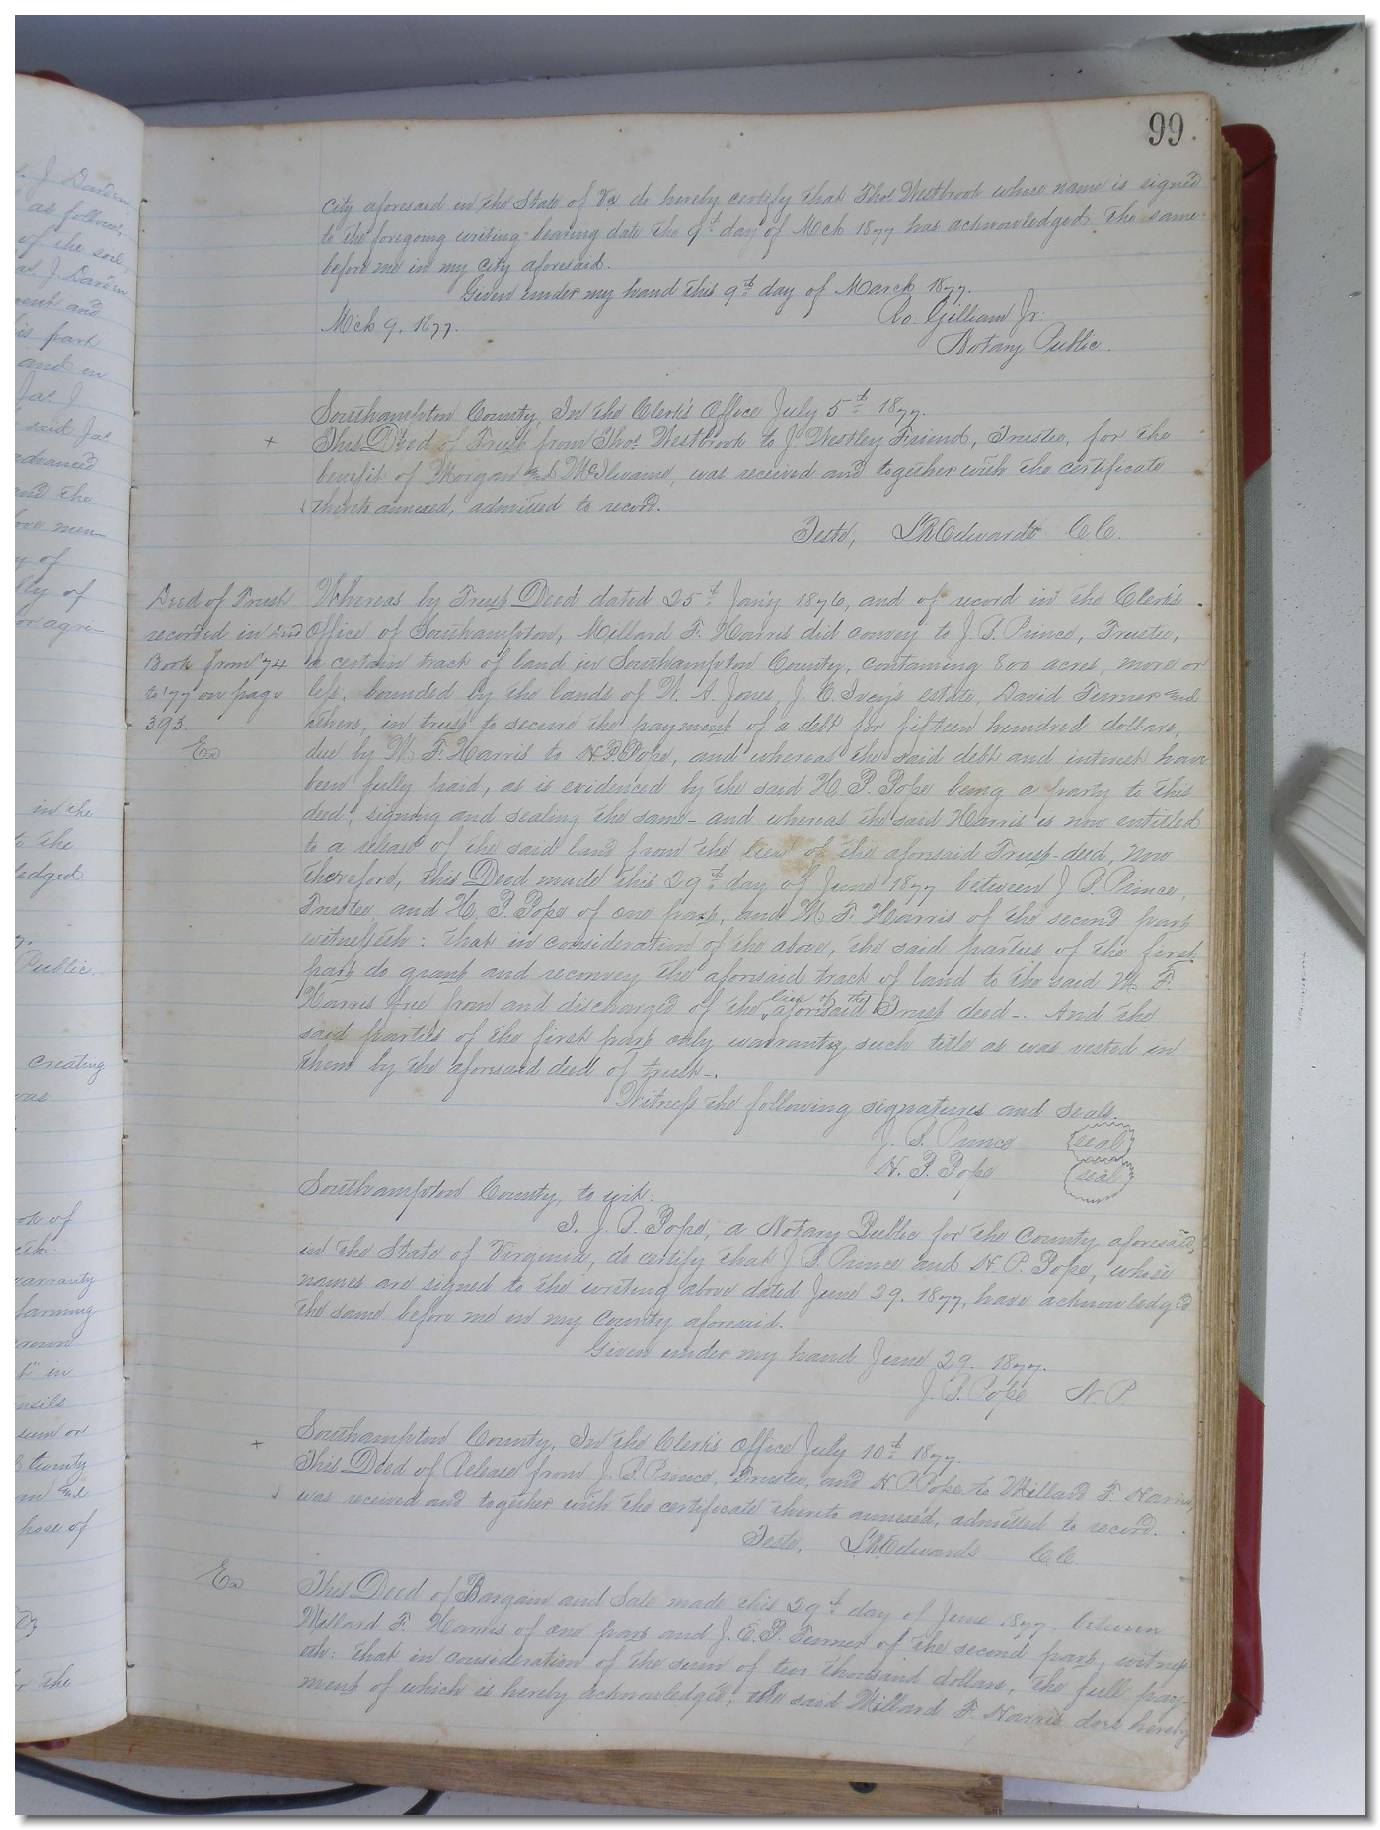 99.
City aforesaid in the State of Va do hereby certify that Thos Westbrook whose name is signed
to the foregoing writing bearing date the 9th day of Mch 1877 has acknowledged the same
before me in my City aforesaid.
Given under my hand this 9th day of March 1877.
Mch 9. 1877.
Gilliam Jr.
Notary Public.
Southampton County, In the Clerk's Office July 5th 1877.
+ This Deed of Trust from Thos Westbrook to Js Westley Friend, Trustee, for the
benefit of Morgan and McIlwaine, was received and together with the certificate
thereto annexed, admitted to record.
Teste, L R Edwards C C.
Deed of Trust
recorded in
Book from '74
to '77 on page
393.
Ex
Whereas by Trust Deed dated 25th Jan'y 1876, and of record in the Clerk's
Office of Southampton, Millard F. Harris did convey to J. B. Prince, Trustee,
a certain track of land in Southampton County, containing 800 acres, more or
less, bounded by the lands of W. A. Jones, J. E. Ivey's estate, David Turner and
others, in trust to secure the payment of a debt for fifteen hundred dollars,
due by M. F. Harris to H. P. Pope, and whereas the said debt and interest have
been fully paid, as is evidenced by the said H. P. Pope being a party to this
deed, signing and sealing the same - and whereas the said Harris is now entitled
to a release of the said land from the lien of the aforesaid Trust-deed, Now
therefore, this Deed made this 29th day of June 1877 between J. B. Prince,
Trustee, and H. P. Pope of one part, and M. F. Harris of the second part
witnesseth: that in consideration of the above, the said parties of the first
part do grant and reconvey the aforesaid track of land to the said M. F.
Harris free from and discharged of the lien of the aforesaid Trust deed-. And the
said parties of the first part only warranty such title as was vested in
them by the aforesaid deed of trust-.
Witness the following signatures and seals.
J. B. Prince seal
H. P. Pope seal
Southampton County, to wit:
I, J. B. Pope, a Notary Public for the County aforesaid,
in the State of Virginia, do certify that J B. Prince and H. P. Pope, whose
names are signed to the writing above dated June 29. 1877, have acknowledg'd
the same before me in my County aforesaid.
Given under my hand June 29. 1877.
J. B. Pope N. P.
Southampton County, In the Clerk's Office July 10th 1877.
+ This Deed of Release from J. B. Prince, Trustee, and H P. Pope to Millard F. Harris,
was received and together with the certificate thereto annexed, admitted to record.
Teste, L R Edwards C. C.
Ex
This Deed of Bargain and Sale made this 29th day of June 1877, between
Millard F. Harris of one part and J. E. P. Turner of the second part, witness
eth: that in consideration of the sum of two thousand dollars, the full pay-
ment of which is hereby acknowledged, the said Millard F. Harris does hereby